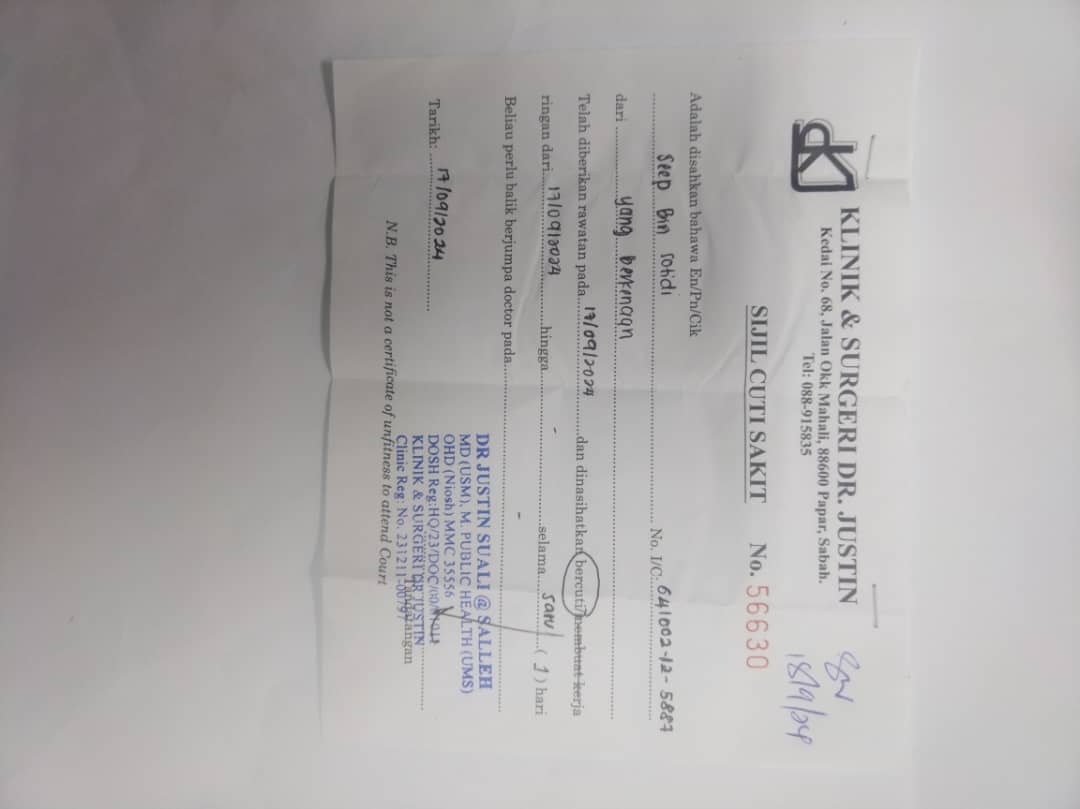 KLINIK & SURGERI DR. JUSTIN
Kedai No. 68, Jalan Okk Mahali, 88600 Papar, Sabah.
Tel: 088-915835
18/9/24
SIJIL CUTI SAKIT No. 56630
Adalah disahkan bahawa En/Pn/Cik
Seep Bin Sotidi No. I/C: 641002-12-5887
dari yang berkenaan
Telah diberikan rawatan pada 17/09/2024 dan dinasihatkan bercuti/membuat kerja
ringan dari 17/09/2024 hingga - selama satu (1) hari
Beliau perlu balik berjumpa doctor pada -
DR JUSTIN SUALI @ SALLEH
MD (USM), M. PUBLIC HEALTH (UMS)
OHD (Niosh) MMC 35556
DOSH Reg:HQ/23/DOC/00/
KLINIK & SURGERI DR JUSTIN
Clinic Reg: No. 231211-00797
Tarikh: 17/09/2024
Tandatangan
N.B. This is not a certificate of unfitness to attend Court